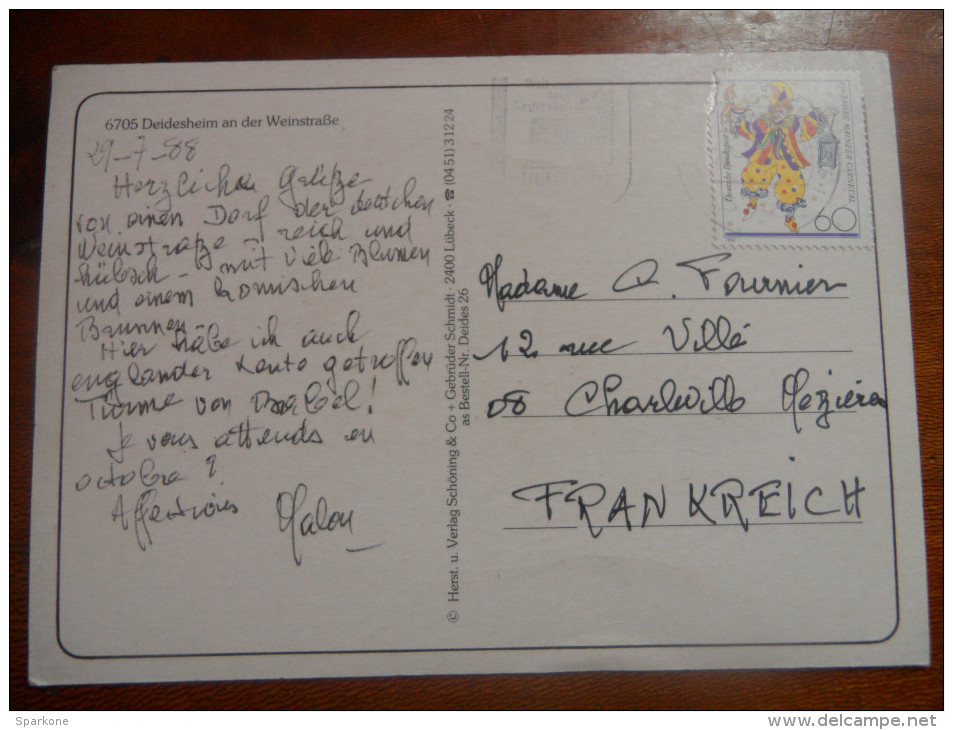 6705 Deidesheim an der Weinstraße
29-7-88
Herzlichen Grüße
von einen Dorf der deutschen
Weinstraße - reich und
hübsch - mit viele Blumen
und einem komischen
Brunnen
Hier habe ich auch
englander Leute getroffen
Türme von Babel!
Je vous attends en
octobre ?
Affections
© Herst. u. Verlag Schöning & Co + Gebrüder Schmidt · 2400 Lübeck · ☎ (04 51) 3 12 24
as Bestell-Nr. Deides 26
Deutsche Bundespost
150 JAHRE MAINZER CARNEVAL
60
Madame Q. Fournier
12 rue Villé
08 Charleville Mézières
FRANKREICH
Sparkone
www.delcampe.net